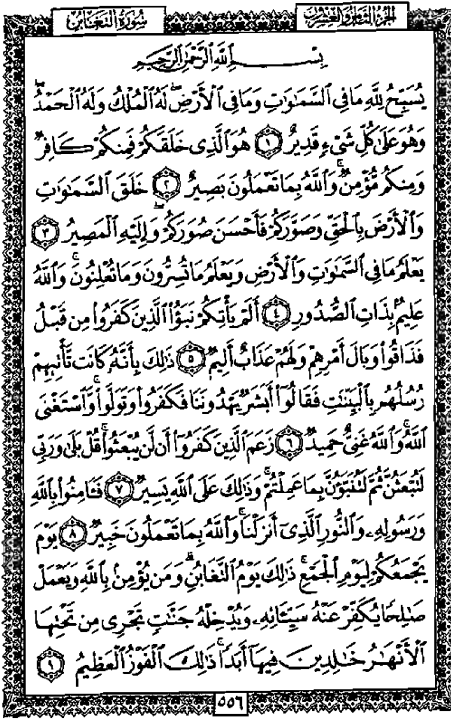 الجزء الثامن والعشرون سورة التغابن
بسم الله الرحمن الرحيم
يُسَبِّحُ لِلَّهِ مَا فِي السَّمَٰوَٰتِ وَمَا فِي الْأَرْضِ لَهُ الْمُلْكُ وَلَهُ الْحَمْدُ
وَهُوَ عَلَىٰ كُلِّ شَيْءٍ قَدِيرٌ ١ هُوَ الَّذِي خَلَقَكُمْ فَمِنكُمْ كَافِرٌ
وَمِنكُم مُّؤْمِنٌ وَاللَّهُ بِمَا تَعْمَلُونَ بَصِيرٌ ٢ خَلَقَ السَّمَٰوَٰتِ
وَالْأَرْضَ بِالْحَقِّ وَصَوَّرَكُمْ فَأَحْسَنَ صُوَرَكُمْ وَإِلَيْهِ الْمَصِيرُ ٣
يَعْلَمُ مَا فِي السَّمَٰوَٰتِ وَالْأَرْضِ وَيَعْلَمُ مَا تُسِرُّونَ وَمَا تُعْلِنُونَ وَاللَّهُ
عَلِيمٌ بِذَاتِ الصُّدُورِ ٤ أَلَمْ يَأْتِكُمْ نَبَؤُا الَّذِينَ كَفَرُوا مِن قَبْلُ
فَذَاقُوا وَبَالَ أَمْرِهِمْ وَلَهُمْ عَذَابٌ أَلِيمٌ ٥ ذَٰلِكَ بِأَنَّهُ كَانَت تَّأْتِيهِمْ
رُسُلُهُم بِالْبَيِّنَٰتِ فَقَالُوا أَبَشَرٌ يَهْدُونَنَا فَكَفَرُوا وَتَوَلَّوا وَّاسْتَغْنَى
اللَّهُ وَاللَّهُ غَنِيٌّ حَمِيدٌ ٦ زَعَمَ الَّذِينَ كَفَرُوا أَن لَّن يُبْعَثُوا قُلْ بَلَىٰ وَرَبِّي
لَتُبْعَثُنَّ ثُمَّ لَتُنَبَّؤُنَّ بِمَا عَمِلْتُمْ وَذَٰلِكَ عَلَى اللَّهِ يَسِيرٌ ٧ فَـَٔامِنُوا بِاللَّهِ
وَرَسُولِهِ وَالنُّورِ الَّذِي أَنزَلْنَا وَاللَّهُ بِمَا تَعْمَلُونَ خَبِيرٌ ٨ يَوْمَ
يَجْمَعُكُمْ لِيَوْمِ الْجَمْعِ ذَٰلِكَ يَوْمُ التَّغَابُنِ وَمَن يُؤْمِن بِاللَّهِ وَيَعْمَلْ
صَٰلِحًا يُكَفِّرْ عَنْهُ سَيِّـَٔاتِهِ وَيُدْخِلْهُ جَنَّٰتٍ تَجْرِي مِن تَحْتِهَا
الْأَنْهَٰرُ خَٰلِدِينَ فِيهَا أَبَدًا ذَٰلِكَ الْفَوْزُ الْعَظِيمُ ٩
٥٥٦